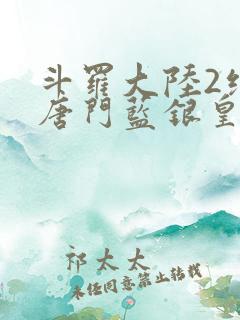 斗羅大陸2絕
唐門藍銀皇
祁太太
未經同意禁止轉載